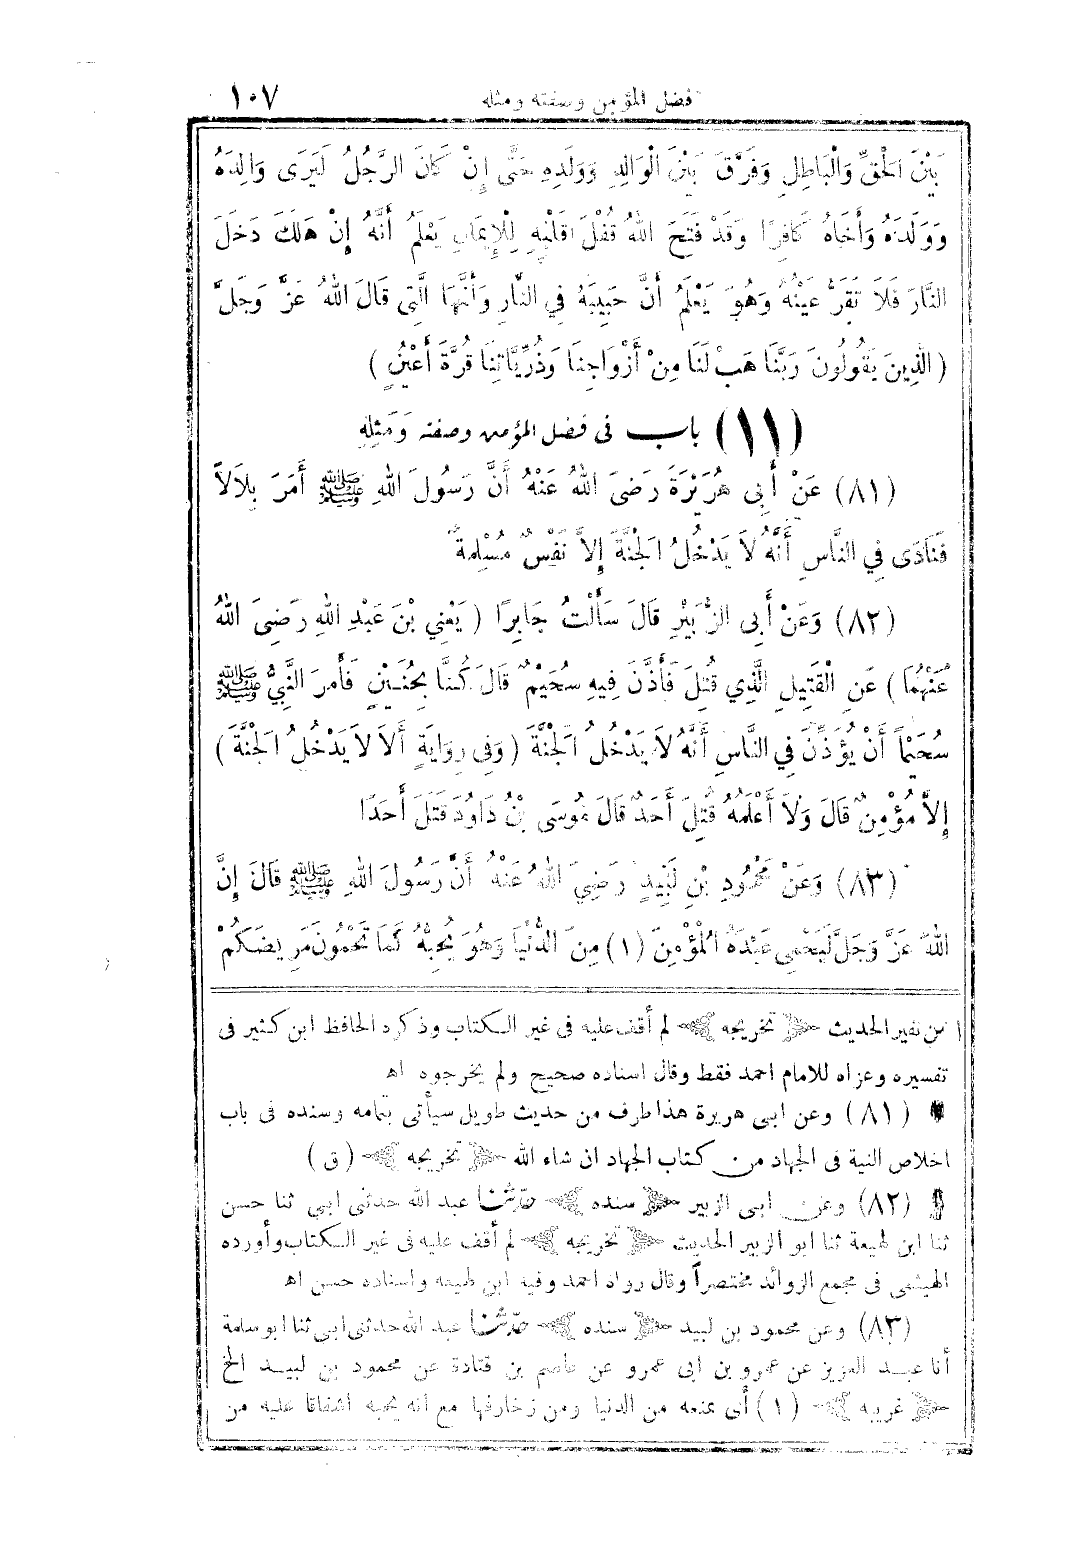 فضل المؤمن وصفته ومثله ١٠٧
بَيْنَ الْحَقِّ وَالْبَاطِلِ وَفَرَّقَ بَيْنَ الْوَالِدِ وَوَلَدِهِ حَتَّى إِنْ كَانَ الرَّجُلُ لَيَرَى وَالِدَهُ
وَوَلَدَهُ وَأَخَاهُ كَافِرًا وَقَدْ فَتَحَ اللهُ قُفْلَ قَلْبِهِ لِلْإِيمَانِ يَعْلَمُ أَنَّهُ إِنْ هَلَكَ دَخَلَ
النَّارَ فَلَا تَقَرُّ عَيْنُهُ وَهُوَ يَعْلَمُ أَنَّ حَبِيبَهُ فِي النَّارِ وَأَنَّهَا الَّتِي قَالَ اللهُ عَزَّ وَجَلَّ
( الَّذِينَ يَقُولُونَ رَبَّنَا هَبْ لَنَا مِنْ أَزْوَاجِنَا وَذُرِّيَّاتِنَا قُرَّةَ أَعْيُنٍ )
(١١) باب في فضل المؤمن وصفته وَمَثَلِهِ
(٨١) عَنْ أَبِي هُرَيْرَةَ رَضِيَ اللهُ عَنْهُ أَنَّ رَسُولَ اللهِ ﷺ أَمَرَ بِلَالاً
فَنَادَى فِي النَّاسِ أَنَّهُ لَا يَدْخُلُ الْجَنَّةَ إِلاَّ نَفْسٌ مُسْلِمَةٌ
(٨٢) وَعَنْ أَبِي الزُّبَيْرِ قَالَ سَأَلْتُ جَابِرًا ( يَعْنِي بْنَ عَبْدِ اللهِ رَضِيَ اللهُ
عَنْهُمَا ) عَنِ الْقَتِيلِ الَّذِي قُتِلَ فَأَذَّنَ فِيهِ سُحَيْمٌ قَالَ كُنَّا بِحُنَيْنٍ فَأَمَرَ النَّبِيُّ ﷺ
سُحَيْمًا أَنْ يُؤَذِّنَ فِي النَّاسِ أَنَّهُ لَا يَدْخُلُ الْجَنَّةَ ( وَفِي رِوَايَةٍ أَلَا لَا يَدْخُلُ الْجَنَّةَ )
إِلاَّ مُؤْمِنٌ قَالَ وَلَا أَعْلَمُهُ قُتِلَ أَحَدٌ قَالَ مُوسَى بْنُ دَاوُدَ قَتَلَ أَحَدًا
(٨٣) وَعَنْ مَحْمُودِ بْنِ لَبِيدٍ رَضِيَ اللهُ عَنْهُ أَنَّ رَسُولَ اللهِ ﷺ قَالَ إِنَّ
اللهَ عَزَّ وَجَلَّ لَيَحْمِي عَبْدَهُ الْمُؤْمِنَ (١) مِنَ الدُّنْيَا وَهُوَ يُحِبُّهُ كَمَا تَحْمُونَ مَرِيضَكُمْ
بن نفير الحديث تخريجه لم أقف عليه في غير الكتاب وذكره الحافظ ابن كثير في
تفسيره وعزاه للامام احمد فقط وقال اسناده صحيح ولم يخرجوه اهـ
(٨١) وعن ابي هريرة هذا طرف من حديث طويل سيأتي بتمامه وسنده في باب
اخلاص النية في الجهاد من كتاب الجهاد ان شاء الله تخريجه (ق)
(٨٢) وعن ابي الزبير سنده حدّثنا عبد الله حدثني ابي ثنا حسن
ثنا ابن لهيعة ثنا ابو الزبير الحديث تخريجه لم أقف عليه في غير الكتاب وأورده
الهيثمى في مجمع الزوائد مختصراً وقال رواه احمد وفيه ابن لهيعه واسناده حسن اهـ
(٨٣) وعن محمود بن لبيد سنده حدّثنا عبد الله حدثني ابي ثنا ابو سلمة
أنا عبد العزيز عن عمرو بن ابي عمرو عن عاصم بن قتادة عن محمود بن لبيد الخ
غريبه (١) أى يمنعه من الدنيا ومن زخارفها مع انه يحبه اشفاقا عليه من